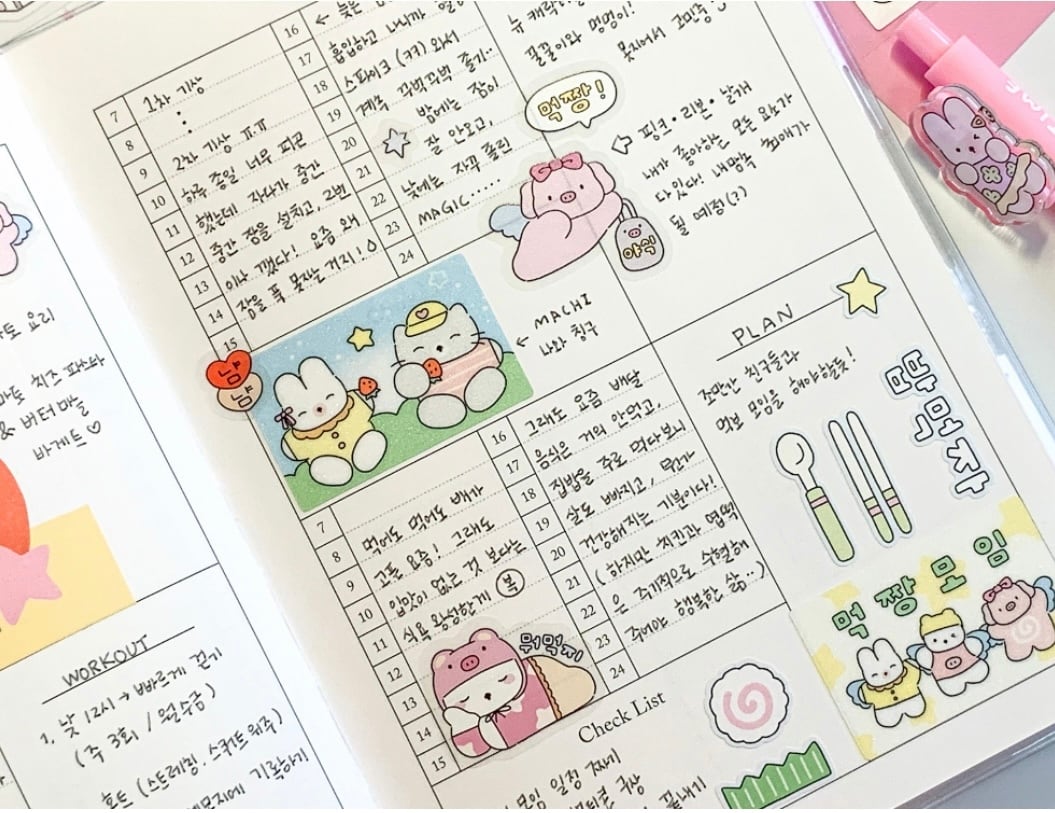 토 요리
마토 치즈 파스타
& 버터마늘
바게트♡
WORKOUT
1. 낮 12시 → 빠르게 걷기
(주 3회 / 월수금)
홈트 (스트레칭. 스쿼트 위주)
기록하기
7
8
9
10
11
12
13
14
15
1차 기상
2차 기상 ㅠ.ㅠ
하루 종일 너무 피곤
했는데 자다가 중간
중간 잠을 설치고, 2번
이나 깼다! 요즘 왜
잠을 푹 못자는 거지!
16
17
18
19
20
21
22
23
24
← 늦은
흡입하고 나니까
스파이크 (커키) 와서
계속 꾸벅꾸벅 졸기..
밤에는 잠이
잘 안오고,
낮에는 자꾸 졸린
MAGIC......
뉴 캐릭터
꿀꿀이와 멍멍이!
먹짱!
핑크・리본・날개
내가 좋아하는 모든 요소가
다 있다! 내맘속 최애가
될 예정(?)
야식
냠
냠
← MACHI
나와 친구
PLAN
조만간 친구들과
먹보 모임을 해야할듯!
밥먹자
7
8
9
10
11
12
13
14
15
먹어도 먹어도 배가
고플 요즘! 그래도
입맛이 없는 것 보다는
식욕 왕성한게 복
뭐먹지
16
17
18
19
20
21
22
23
24
그래도 요즘 배달
음식은 거의 안먹고,
집밥을 주로 먹다보니
살도 빠지고, 뭔가
건강해지는 기분이다!
(하지만 치킨과 엽떡
은 주기적으로 수혈해
줘야 행복한 삶..)
먹짱모임
Check List
모임 일정 짜기
구상
끝내기